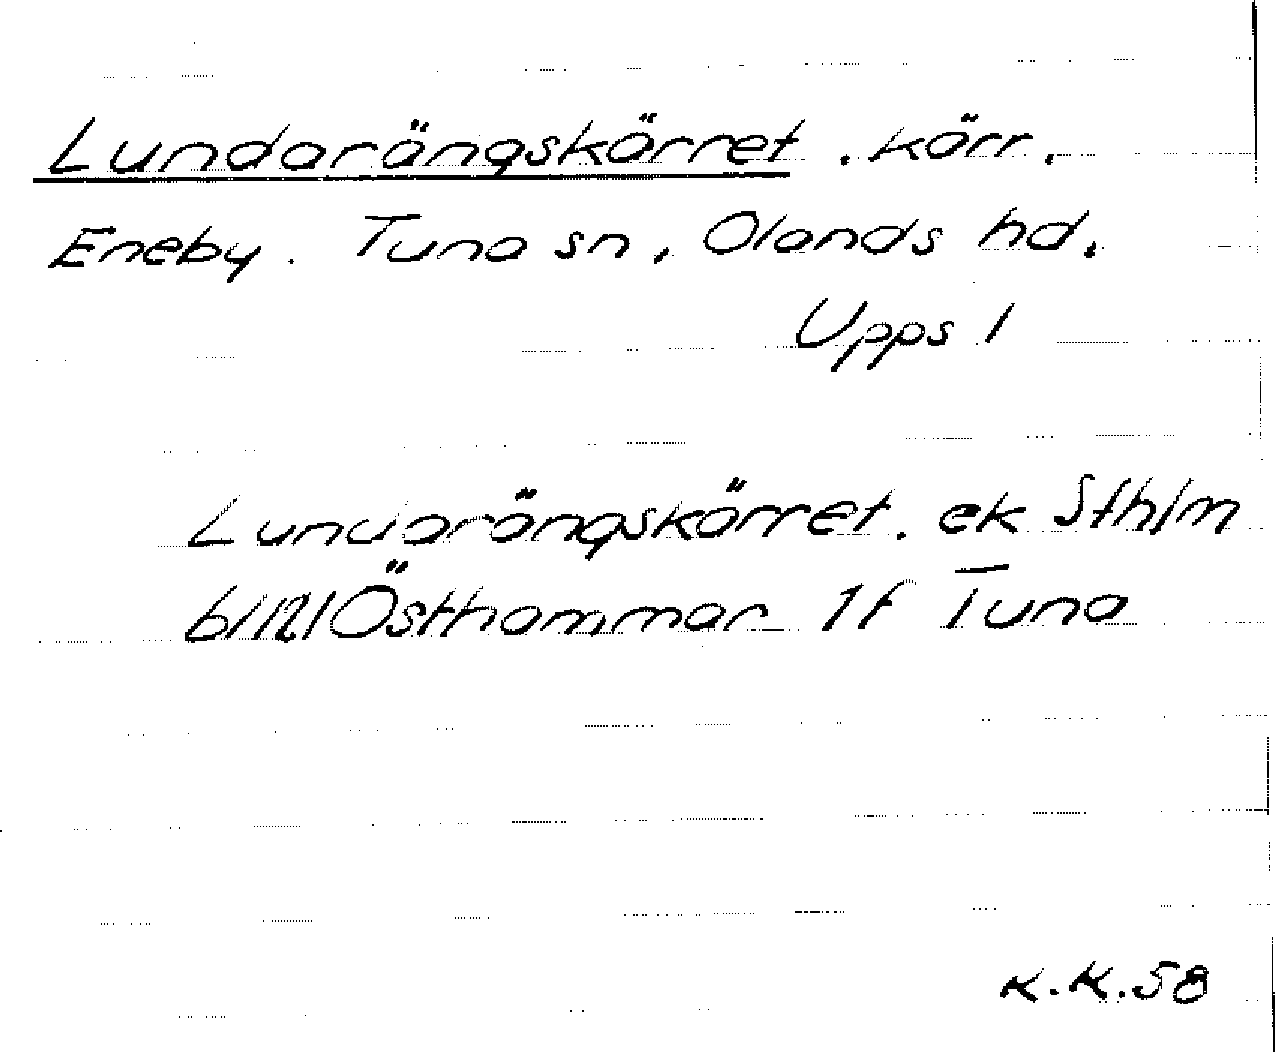 Lundarängskärret . kärr.
Eneby . Tuna sn, Olands hd.
Upps l
Lundarängskärret. ek Sthlm
bl 121 Östhammar 1f Tuna
K.K.58